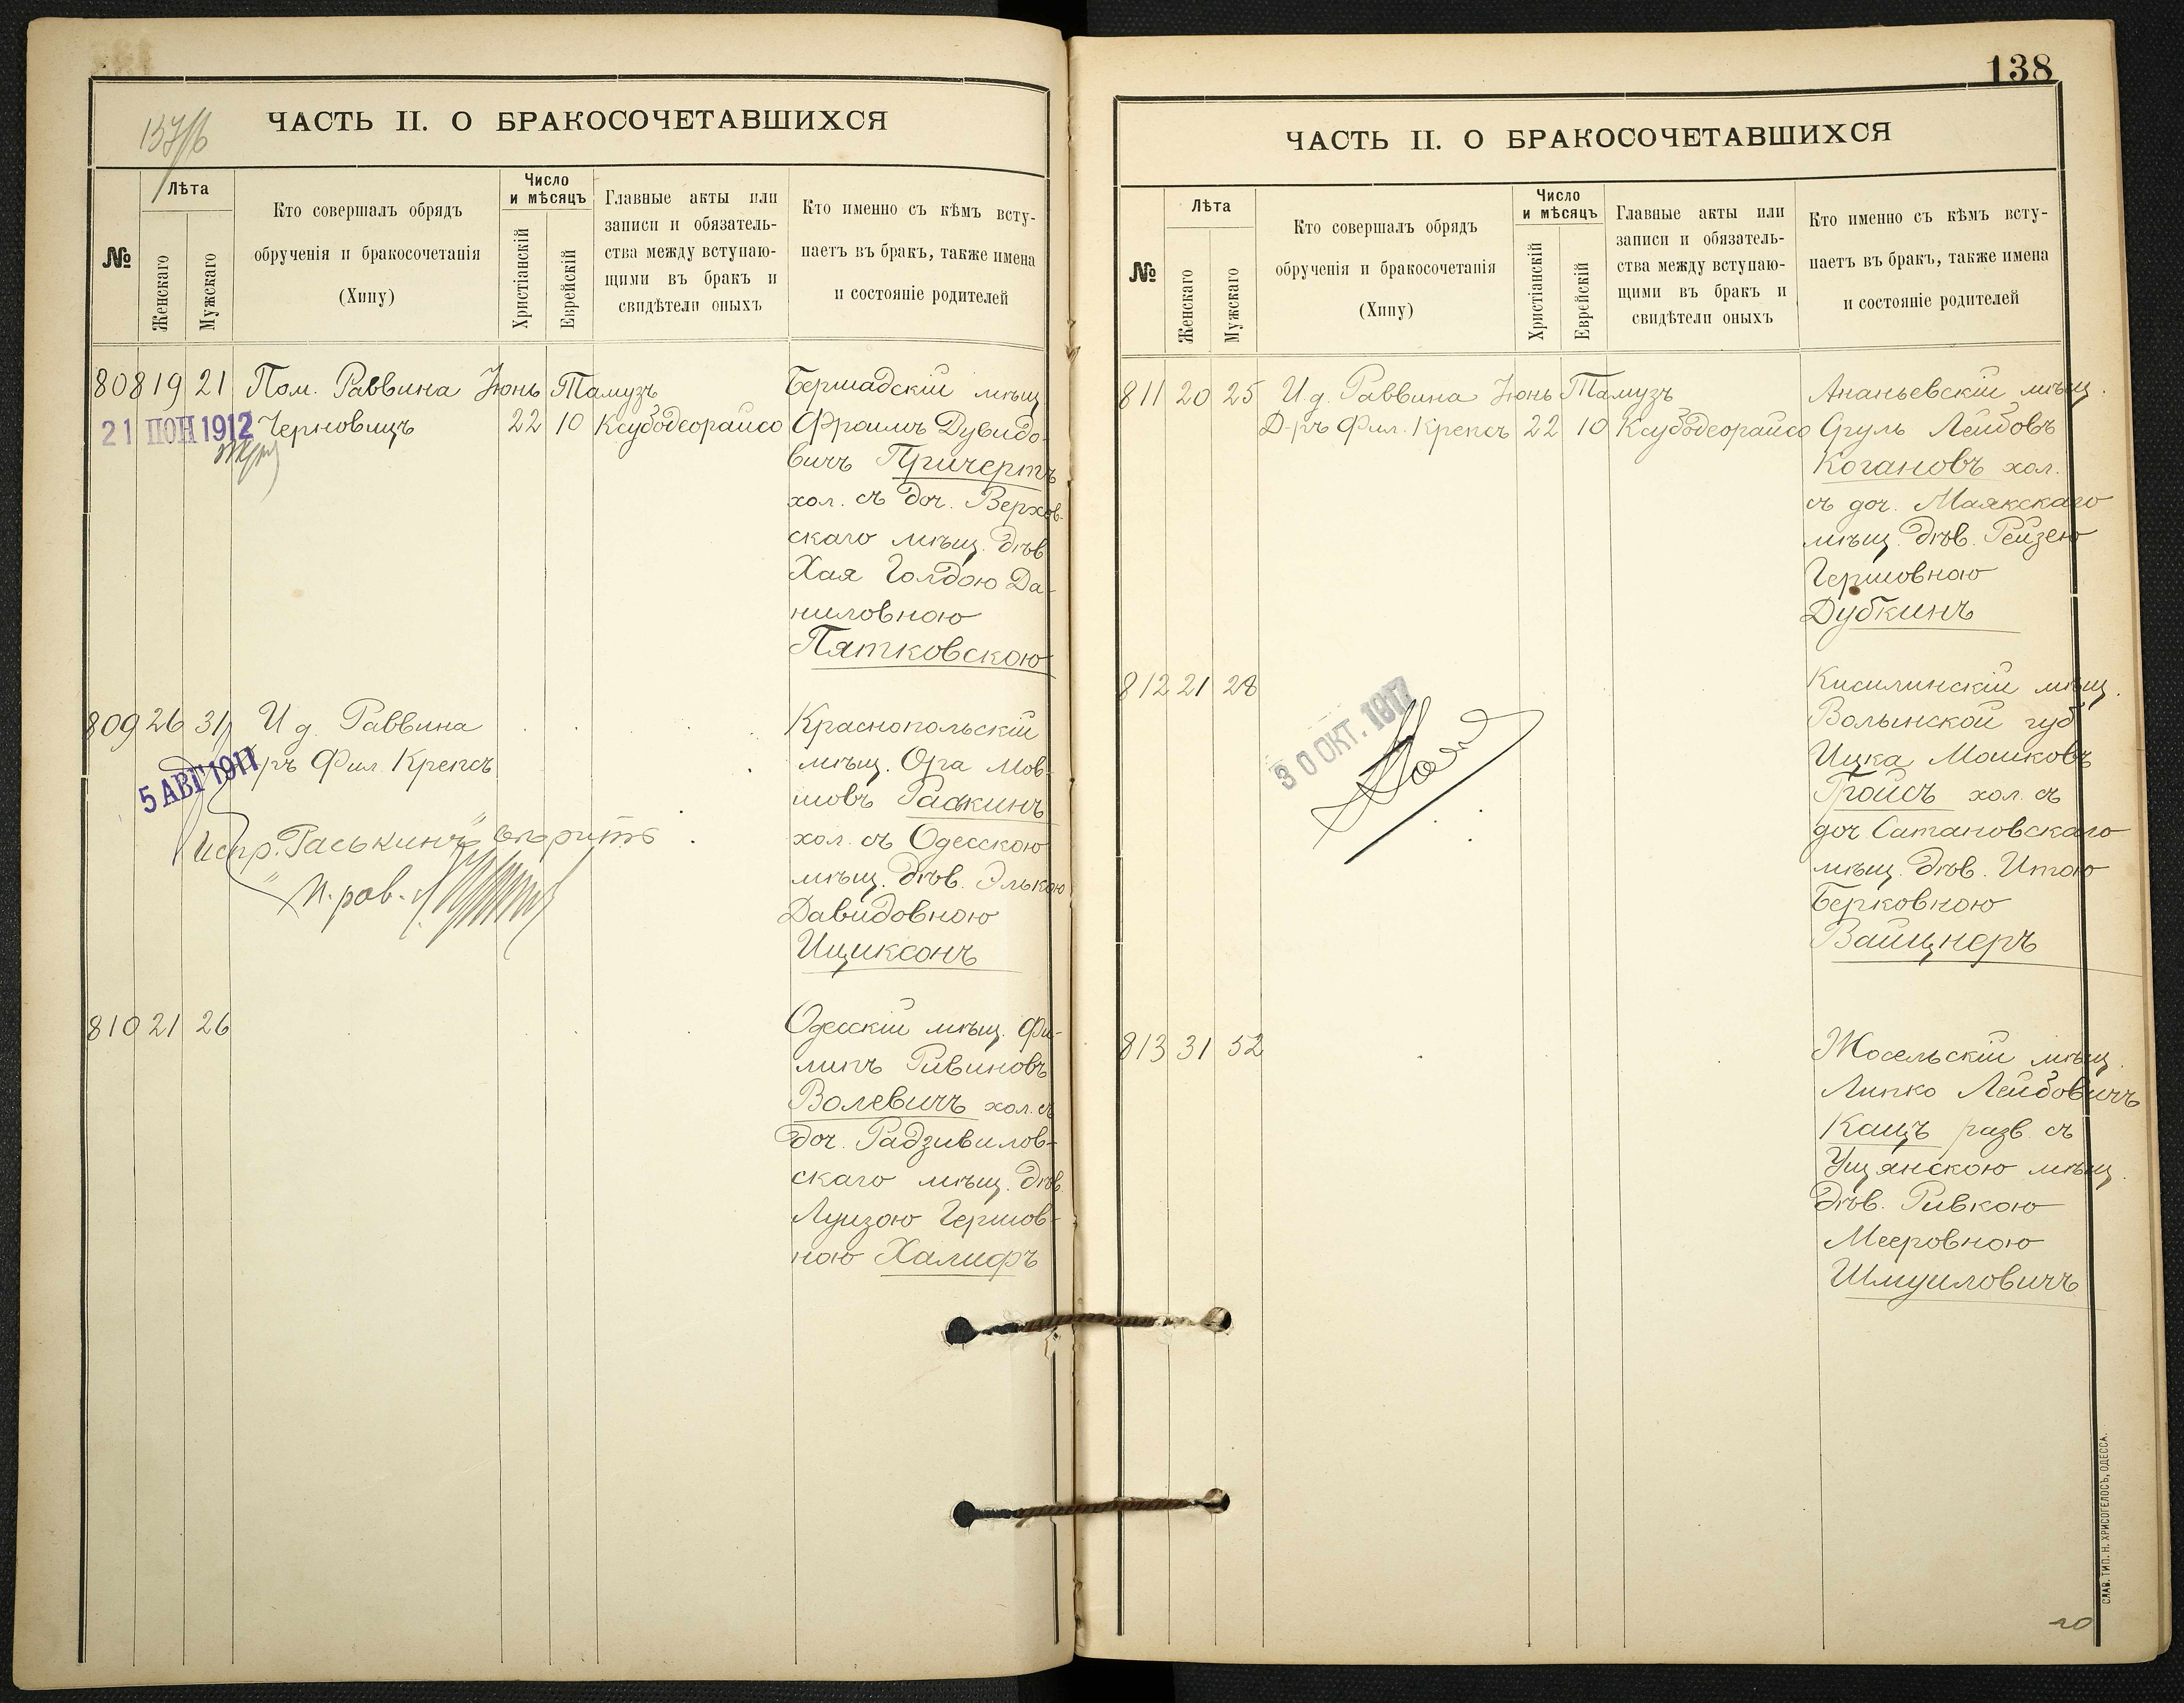 137/б
ЧАСТЬ II. О БРАКОСОЧЕТАВШИХСЯ
№
Лѣта
Женскаго
Мужскаго
Кто совершалъ обрядъ
обрученія и бракосочетанія
(Хипу)
Число
и мѣсяцъ
Христіанскій
Еврейскій
Главные акты или
записи и обязатель-
ства между вступаю-
щими въ бракъ и
свидѣтели оныхъ
Кто именно съ кѣмъ всту-
паетъ въ бракъ, также имена
и состояніе родителей
808 19 21 Пом. Раввина Іюнь Тамузъ
Черновицъ 22 10 Ксубодеорайсо
21 ІЮН 1912
Бершадскій мѣщ
Фроимъ Дувидо-
вичъ Причертъ
хол. съ доч. Верхов-
скаго мѣщ. дѣв
Хая Голдою Да-
ниловною
Пятковскою
809 26 31 И д. Раввина
Д-ръ Фил. Крепсъ
5 АВГ 1911
Испр. "Раськинъ" вѣрить
И. рав.
Краснопольскій
мѣщ. Ора Мов-
шовъ Раскинъ
хол. съ Одесскою
мѣщ. дѣв. Элькою
Давидовною
Ициксонъ
810 21 26
Одесскій мѣщ. Фи-
липъ Рувиновъ
Волевичъ хол. съ
доч. Радзивилов-
скаго мѣщ. дѣв
Луизою Гершов-
ною Халифъ
138
ЧАСТЬ II. О БРАКОСОЧЕТАВШИХСЯ
№
Лѣта
Женскаго
Мужскаго
Кто совершалъ обрядъ
обрученія и бракосочетанія
(Хипу)
Число
и мѣсяцъ
Христіанскій
Еврейскій
Главные акты или
записи и обязатель-
ства между вступаю-
щими въ бракъ и
свидѣтели оныхъ
Кто именно съ кѣмъ всту-
паетъ въ бракъ, также имена
и состояніе родителей
811 20 25 И.д. Раввина Іюнь Тамузъ
Д-ръ Фил. Крепсъ 22 10 Ксубодеорайсо
Ананьевскій мѣщ.
Сруль Лейбовъ
Когановъ хол.
съ доч. Маякскаго
мѣщ. дѣв. Рейзею
Гершовною
Дубкинъ
812 21 28
30 ОКТ. 1917
Кисилинскій мѣщ.
Волынской губ
Ицка Мошковъ
Гройсъ хол. съ
доч. Сатановскаго
мѣщ. дѣв. Итою
Берковною
Вайцнеръ
813 31 52
Жосельскій мѣщ.
Липко Лейбовичъ
Кацъ разв. съ
Ущянскою мѣщ.
дѣв. Ривкою
Мееровною
Шмуиловичъ
СЛАВ. ТИП. Н. ХРИСОГЕЛОСЪ, ОДЕССА.